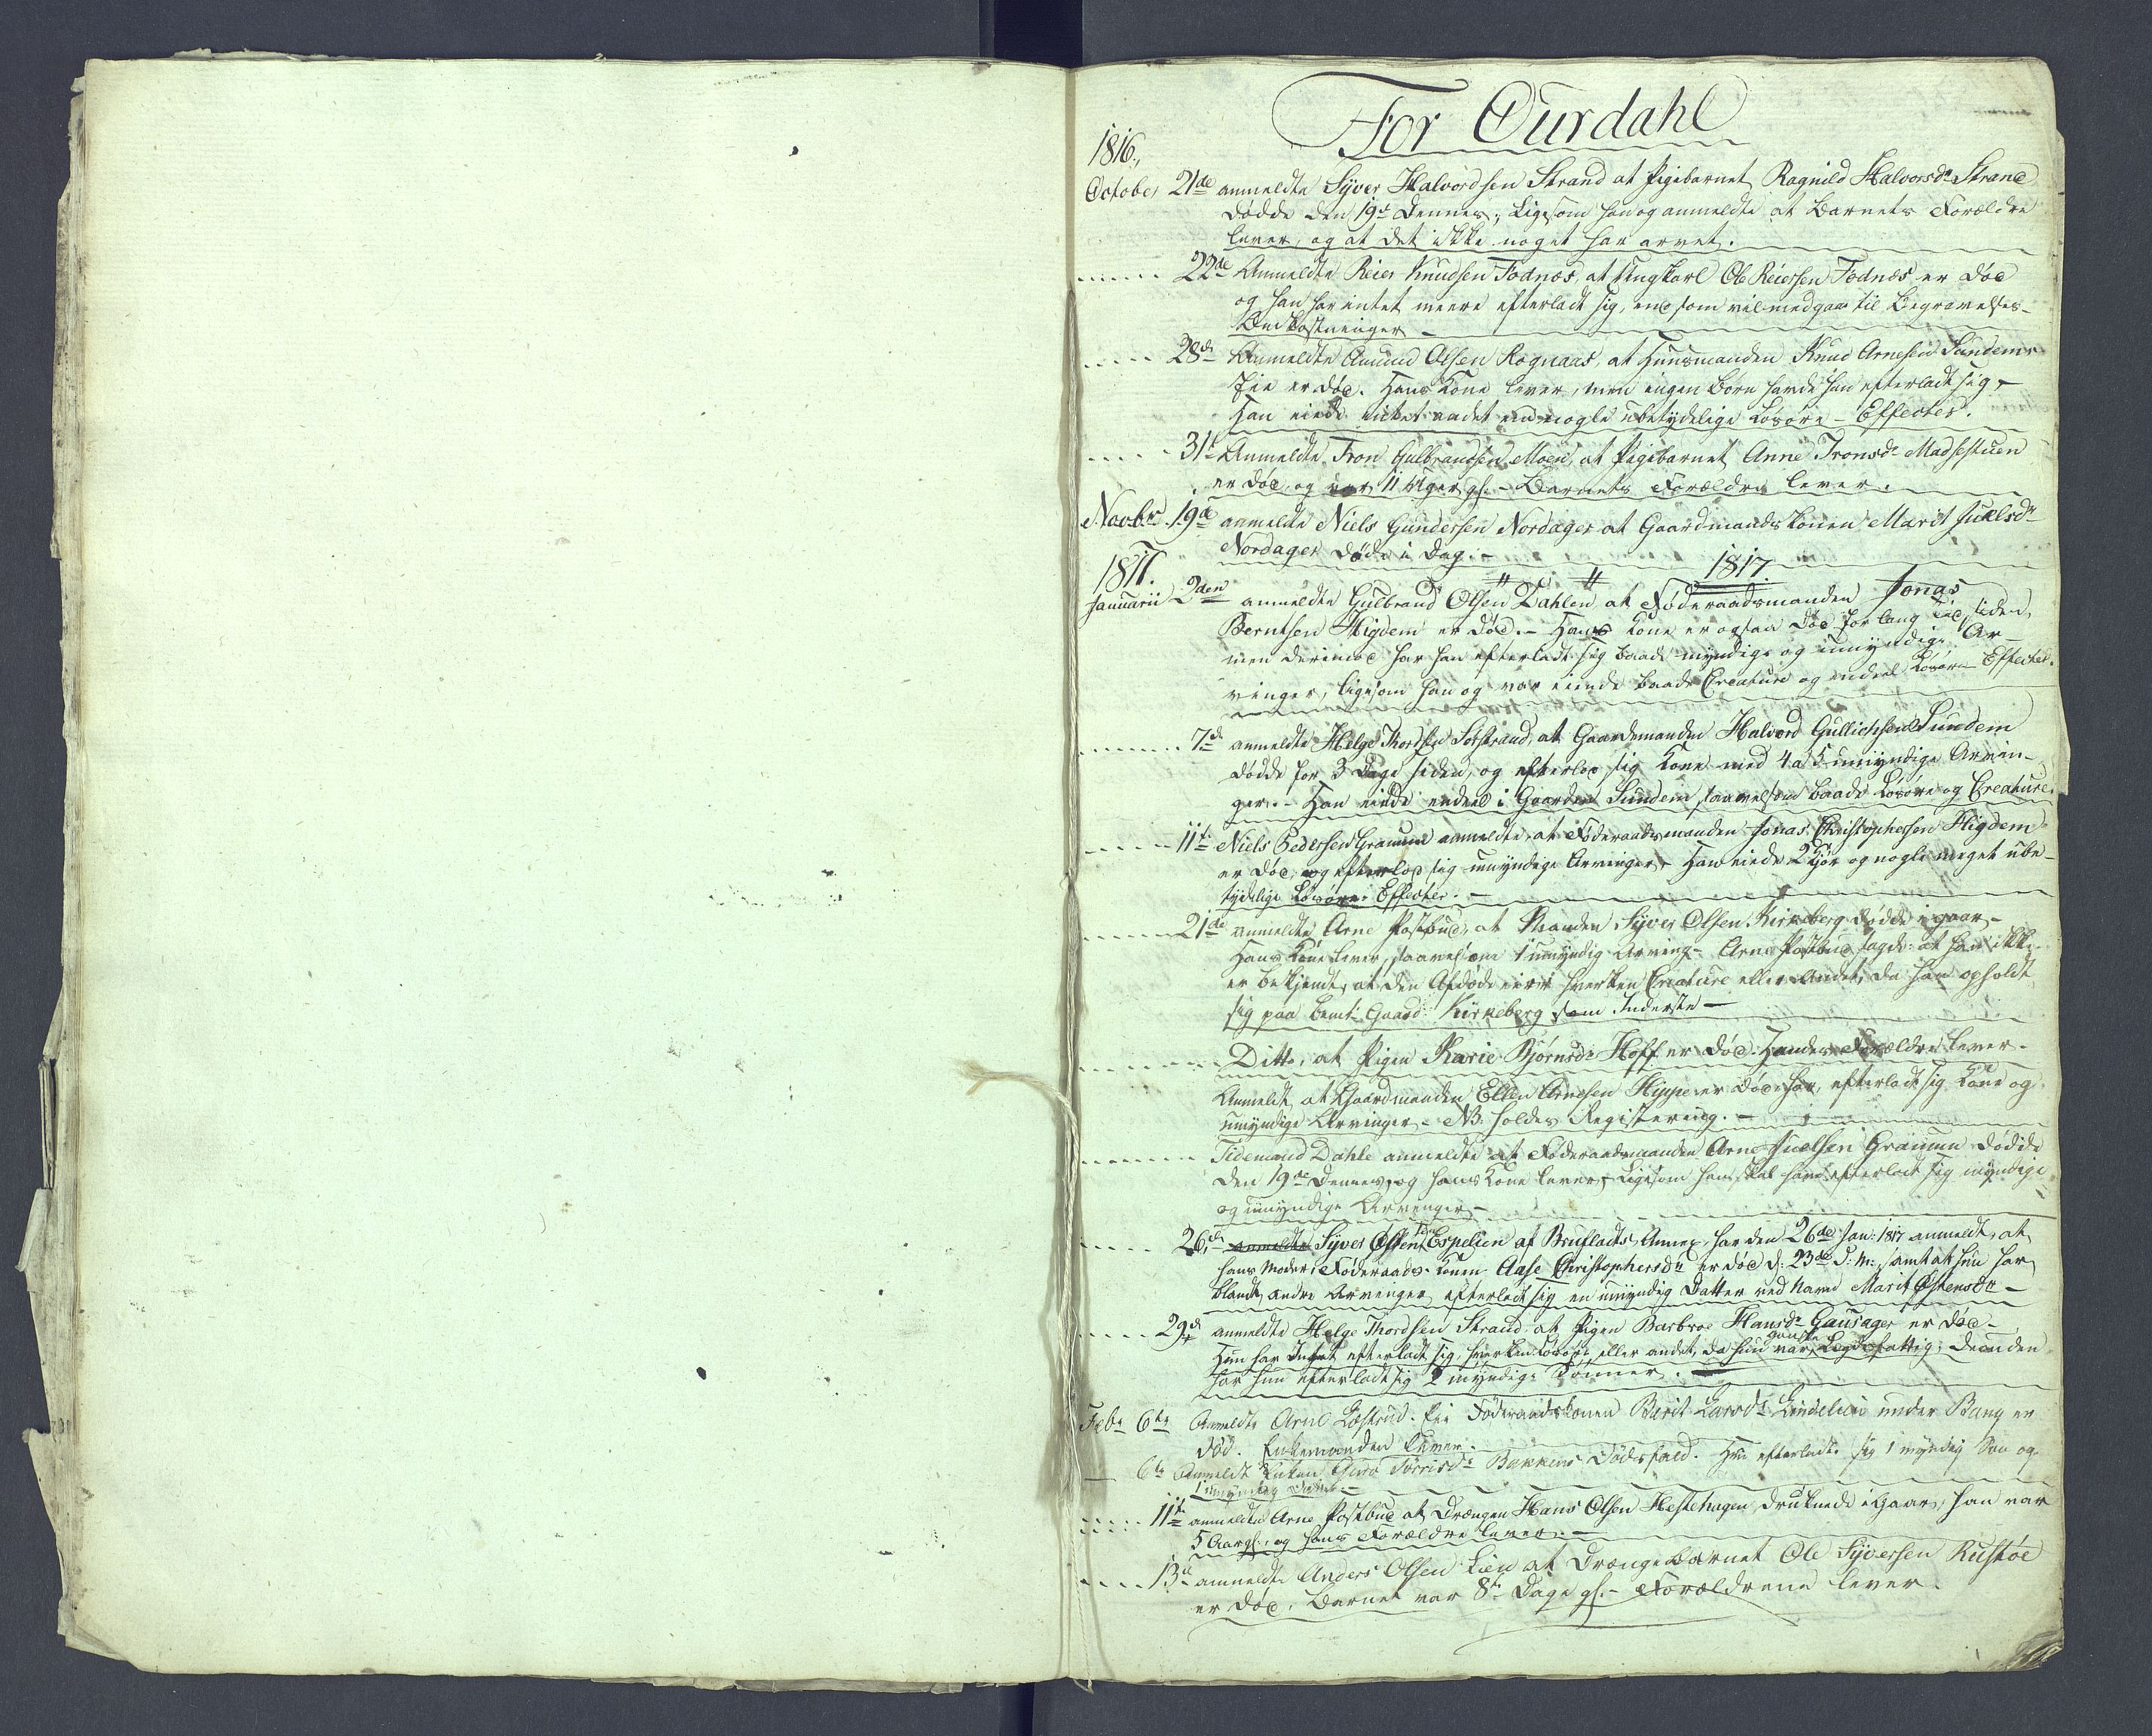 For Ourdahl
1816.
October 21de anmeldte Syver Halvordsen Strand at Pigebarnet Ragnild Halvorsdr Strand
døde den 19de Dennes; Ligesom han og anmeldte at Barnets Forældre
lever, og at det ikke noget har arvet.
22de Anmeldte Reier Knudsen Fodnæs, at Ungkarl Ole Reiersen Fodnæs er død
og han har intet meere efterladt sig, end som vil medgaae til Begravelses-
Omkostninger
28de Anmeldte Amund Olsen Rognaas, at Huusmanden Knud Arnesen Sundem-
Eie er død. Hans Kone lever, men ingen Børn havde han efterladt sig,
Han eiede intet andet end nogle ubetydelige Løsøre-Effecter.
31te Anmeldte Tron Gulbrandsen Moen, at Pigebarnet Anne Tronsdr Madsstuen
er død, og var 11 Uger gl. - Barnets Forældre lever.
Novbr 19de anmeldte Niels Gundersen Nordager at Gaardmandskonen Marit Juelsdr
Nordager døde i Dag. -
1817. 1817.
Januarii 2den anmeldte Gulbrand Olsen Dahlen at Føderaadsmanden Jonas
Berntsen Høgdem er død. - Hans Kone er ogsaa død for lang tid siden,
men derimod har han efterladt sig baade myndige og umyndige Ar-
vinger, ligesom han og var eiende baade Creature og endeel Løsøre Effecter.
7de anmeldte Helge Thordsen Sørstrand, at Gaardmanden Halvord Gullichsen Sundem
døde for 3 Dage siden, og efterlod sig Kone med 4 a 5 umyndige Arvin-
ger. - Han eiede endeel i Gaarden Sundem, saavelsom baade Løsøre og Creature.
11te Niels Pedersen Granum anmeldte, at Føderaadsmanden Jonas Christophersen Høgdem
er død, og efterlod sig umyndige Arvinger, Han eiede 2 Kjør og nogle meget ube-
tydelige Løsøre Effecter. -
21de anmeldte Arne Postbud, at Manden Syver Olsen Kirkeberg døde igaar -
Hans Kone lever, saavelsom 1 umyndig Arving - Arne Postbud sagde: at han ikke
er bekjendt, at den Afdøde eier hverken Creature eller Andet, da han opholdt
sig paa bemte Gaard Kirkeberg som Inderste -
Ditto, at Pigen Karie Bjørnsdr Hoff er død. Hendes Forældre lever -
Anmeldt, at Gaardmanden Ellen Arnesen Hippe er død, har efterladt sig Kone og
umyndige Arvinger - NB. holdes Registering. -
Tidemand Dahle anmeldte at Føderaadsmanden Arne Juelsen Granum døde
den 19de Dennes, og hans Kone lever, Ligesom han skal have efterladt sig myndige
og umyndige Arvinger -
26de anmeldte Syver Østen Espelien af Bruflads Annex, har den 26de Jan: 1817 anmeldt, at
hans Moder Føderaads-Konen Aase Christophersdr er død d: 23de d: M: samt at hun har
blandt andre Arvinger efterladt sig en umyndig Datter ved Navn Marit Østensdr -
29de anmeldte Helge Thordsen Strand at Pigen Barbroe Hansdr Gausager er død -
Hun har Intet efterladt sig, hverken Løsøre eller andet, da hun var ganske Lægdsfattig; Desuden
har hun efterladt sig 2 myndige Sønner.
Febr 6te Anmeldte Arne Løstrud-Eie Føderaadskonen Berit Larsdr Lindelien under Bang er
død. Enkemanden lever.
6te Anmeldt Enken Guro Torrisdr Bakkens Dødsfald. Hun efterlader sig 1 myndig Søn og
1 umyndig Datter -
11te anmeldte Arne Postbud at Drengen Hans Olsen Hestehagen druknede iGaar; han var
5 Aar gl., og hans Forældre lever. -
13de anmeldte Anders Olsen Lien at Drengebarnet Ole Syversen Rustøe
er død, Barnet var 8te Dage gl. - Forældrene lever.